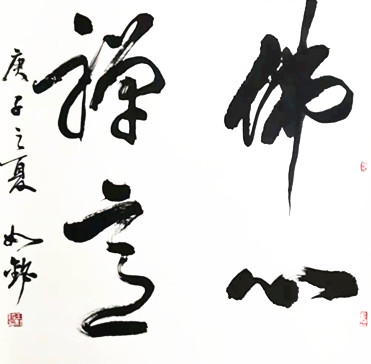 佛心
禅意
庚子之夏 如